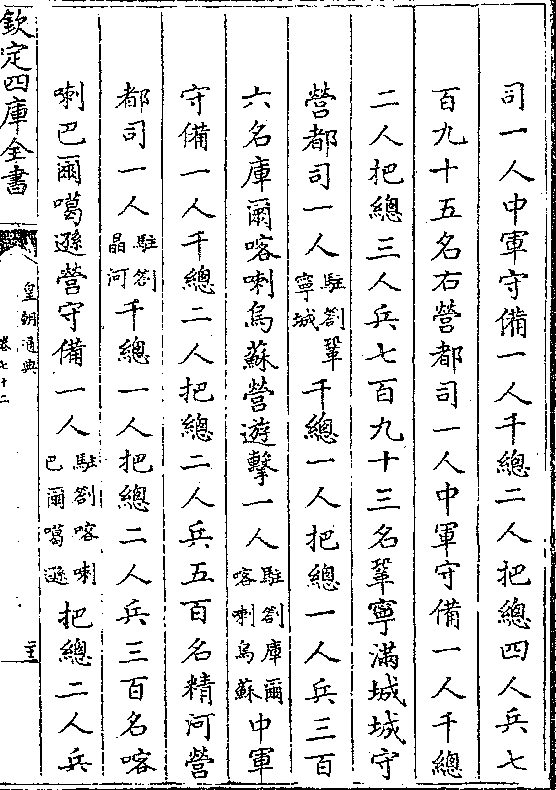 司一人中軍守備一人千總二人把總四人兵七
百九十五名右營都司一人中軍守備一人千總
二人把總三人兵七百九十三名鞏寧滿城城守
營都司一人駐劄鞏寧城千總一人把總一人兵三百
六名庫爾喀喇烏蘇營遊擊一人駐劄庫爾喀喇烏蘇中軍
守備一人千總二人把總二人兵五百名精河營
都司一人駐劄晶河千總一人把總二人兵三百名喀
喇巴爾噶遜營守備一人駐劄喀喇巴爾噶遜把總二人兵
欽定四庫全書
皇朝通典
卷七十二